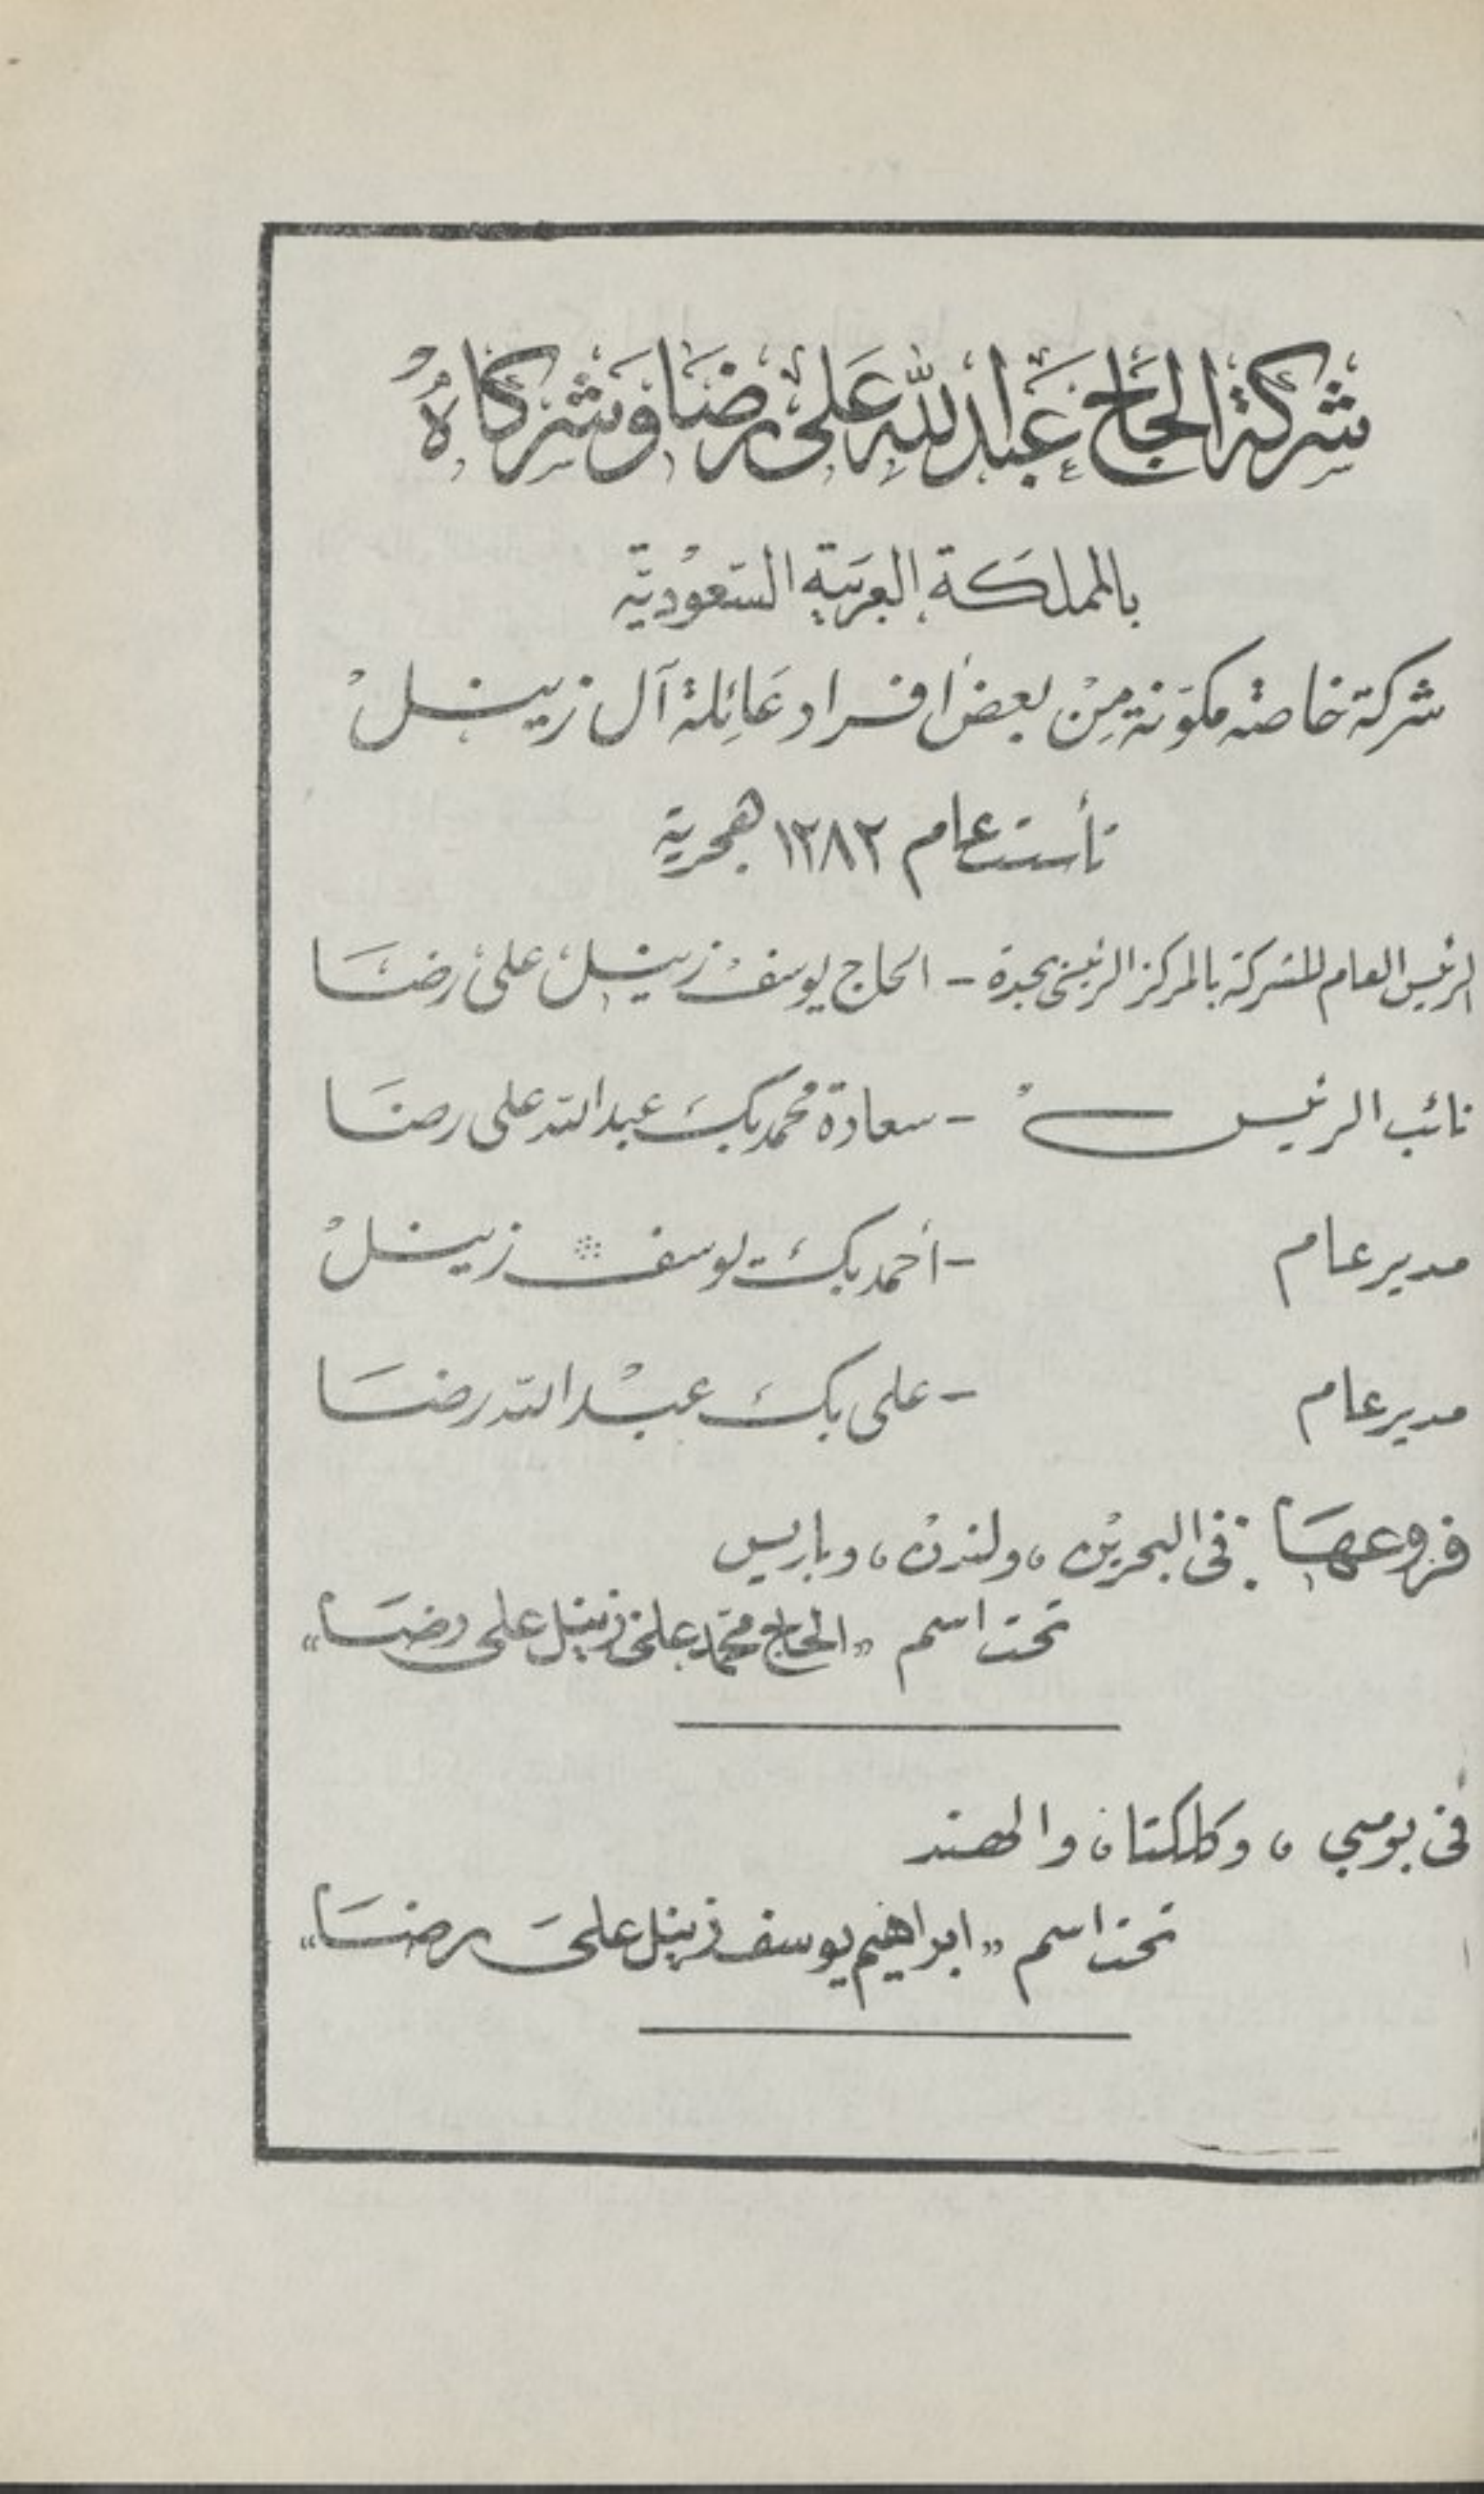 شركة الحاج عبد الله على رضا وشركاه
بالمملكة العربية السعودية
شركة خاصة مكونة من بعض افراد عائلة آل زينل
تأسست عام ١٢٨٢ هجرية
الرئيس العام للشركة بالمركز الرئيسى بجدة - الحاج يوسف زينل على رضا
نائب الرئيس - سعادة محمد بك عبد الله على رضا
مدير عام - أحمد بك يوسف زينل
مدير عام - على بك عبد الله رضا
فروعها : فى البحرين ، ولندن ، وباريس
تحت اسم « الحاج محمد على زينل على رضا »
فى بومبي ، وكلكتا ، والهند
تحت اسم « ابراهيم يوسف زينل على رضا »